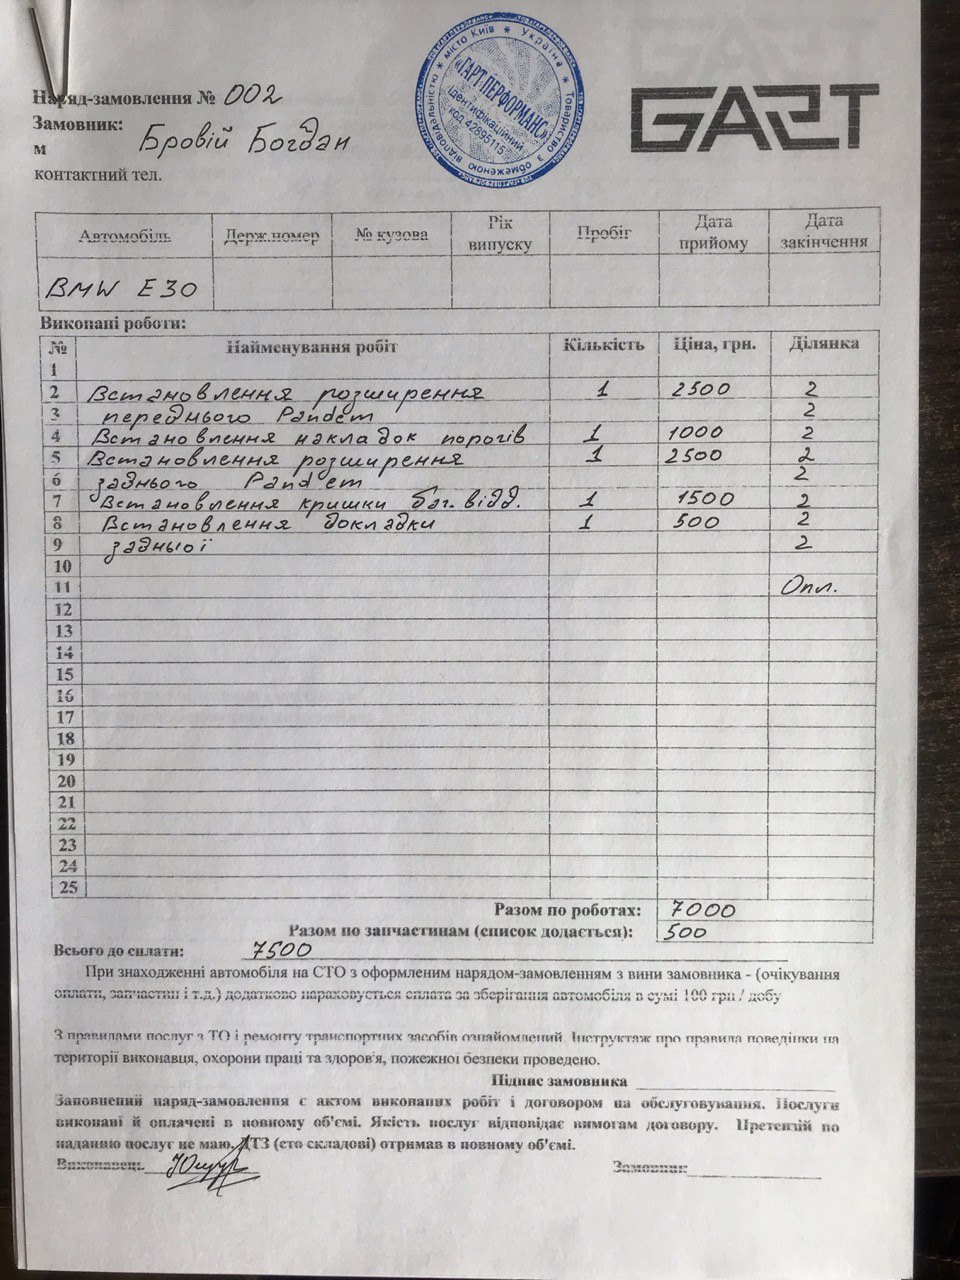 Наряд-замовлення № 002
Замовник: Бровій Богдан
м
контактний тел.
ТОВ "ГАРТ ПЕРФОРМАНС"
Товариство з обмеженою відповідальністю * місто Київ * Україна *
«ГАРТ ПЕРФОРМАНС»
Ідентифікаційний
код 42895115
GART
Автомобіль Держ.номер № кузова Рік випуску Пробіг Дата прийому Дата закінчення
BMW E30
Виконані роботи:
№ Найменування робіт Кількість Ціна, грн. Ділянка
1
2 Встановлення розширення 1 2500 2
3 переднього Pandem 2
4 Встановлення накладок порогів 1 1000 2
5 Встановлення розширення 1 2500 2
6 заднього Pandem 2
7 Встановлення кришки баг. відд. 1 1500 2
8 Встановлення докладки 1 500 2
9 задньої 2
10
11 Опл.
12
13
14
15
16
17
18
19
20
21
22
23
24
25
Разом по роботах: 7000
Разом по запчастинам (список додається): 500
Всього до сплати: 7500
При знаходженні автомобіля на СТО з оформленим нарядом-замовленням з вини замовника - (очікування
оплати, запчастин і т.д.) додатково нараховується сплата за зберігання автомобіля в сумі 100 грн / добу
З правилами послуг з ТО і ремонту транспортних засобів ознайомлений. Інструктаж про правила поведінки на
території виконавця, охорони праці та здоров'я, пожежної безпеки проведено.
Підпис замовника
Заповнений наряд-замовлення є актом виконаних робіт і договором на обслуговування. Послуги
виконані й оплачені в новному об'ємі. Якість послуг відповідає вимогам договору. Претензій по
наданню послуг не маю. ДТЗ (сто складові) отримав в новному об'ємі.
Виконавець Замовник